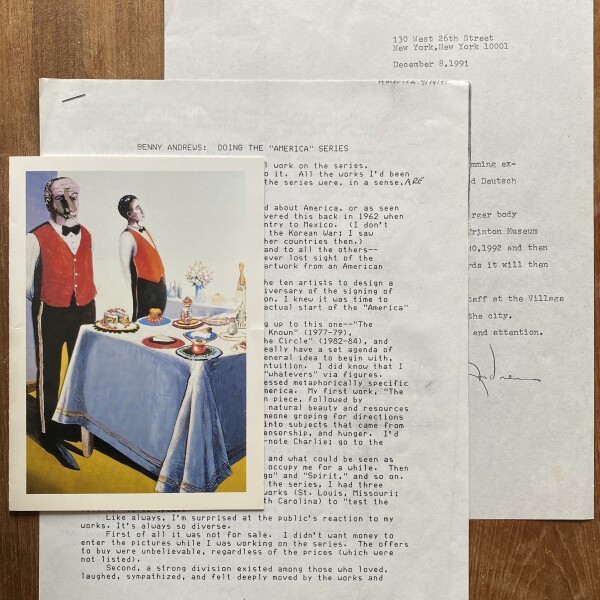 130 West 26th Street
New York,New York 10001
December 8,1991
America 9/19/91
BENNY ANDREWS: DOING THE "AMERICA" SERIES
l work on the series.
o it. All the works I'd been
the series were, in a sense, ARE
d about America, or as seen
vered this back in 1962 when
ntry to Mexico. (I don't
the Korean War; I saw
her countries then.)
and to all the others--
ever lost sight of the
artwork from an American
he ten artists to design a
iversary of the signing of
on, I knew it was time to
actual start of the "America"
g up to this one--"The
Known" (1977-79),
he Circle" (1982-84), and
eally have a set agenda of
eneral idea to begin with,
ntuition. I did know that I
"whatevers" via figures.
essed metaphorically specific
merica. My first work, "The
n piece, followed by
natural beauty and resources
meone groping for directions
into subjects that came from
ensorship, and hunger. I'd
-note Charlie; go to the
and what could be seen as
occupy me for a while. Then
go" and "Spirit," and so on.
the series, I had three
works (St. Louis, Missouri;
th Carolina) to "test the
Like always, I'm surprised at the public's reaction to my
works. It's always so diverse.
First of all it was not for sale. I didn't want money to
enter the pictures while I was working on the series. The offers
to buy were unbelievable, regardless of the prices (which were
not listed).
Second, a strong division existed among those who loved,
laughed, sympathized, and felt deeply moved by the works and
mming ex-
d Deutsch
rger body
rinton Museum
0,1992 and then
rds it will then
taff at the Village
the city.
and attention.